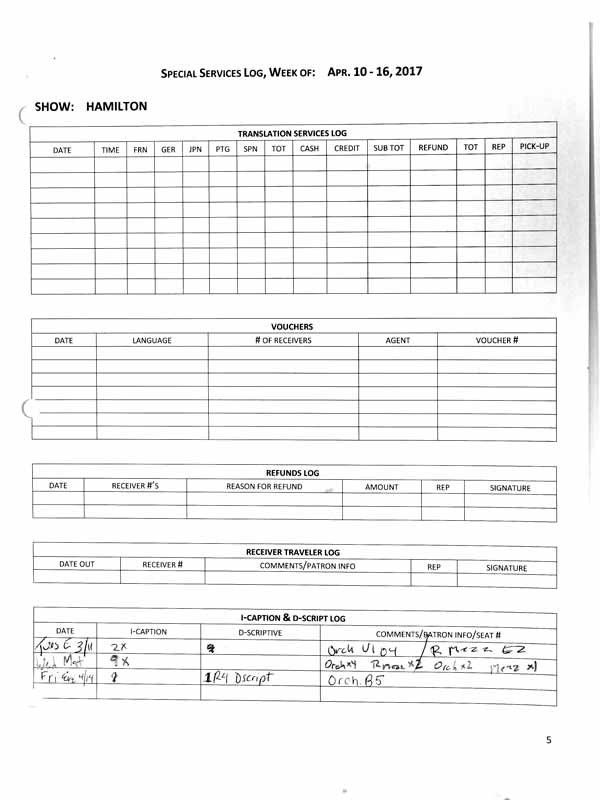 SPECIAL SERVICES LOG, WEEK OF: APR. 10 - 16, 2017
SHOW: HAMILTON
TRANSLATION SERVICES LOG
DATE TIME FRN GER JPN PTG SPN TOT CASH CREDIT SUB TOT REFUND TOT REP PICK-UP
VOUCHERS
DATE LANGUAGE # OF RECEIVERS AGENT VOUCHER #
REFUNDS LOG
DATE RECEIVER #'S REASON FOR REFUND AMOUNT REP SIGNATURE
RECEIVER TRAVELER LOG
DATE OUT RECEIVER # COMMENTS/PATRON INFO REP SIGNATURE
I-CAPTION & D-SCRIPT LOG
DATE I-CAPTION D-SCRIPTIVE COMMENTS/PATRON INFO/SEAT #
Tues E 3/11 2x Orch U104 / R Mezz E2
Wed Mat 9x Orchx4 R mezz x2 Orch x2 Mezz x1
Fri Eve 4/14 1R4 Dscript Orch. B5
5